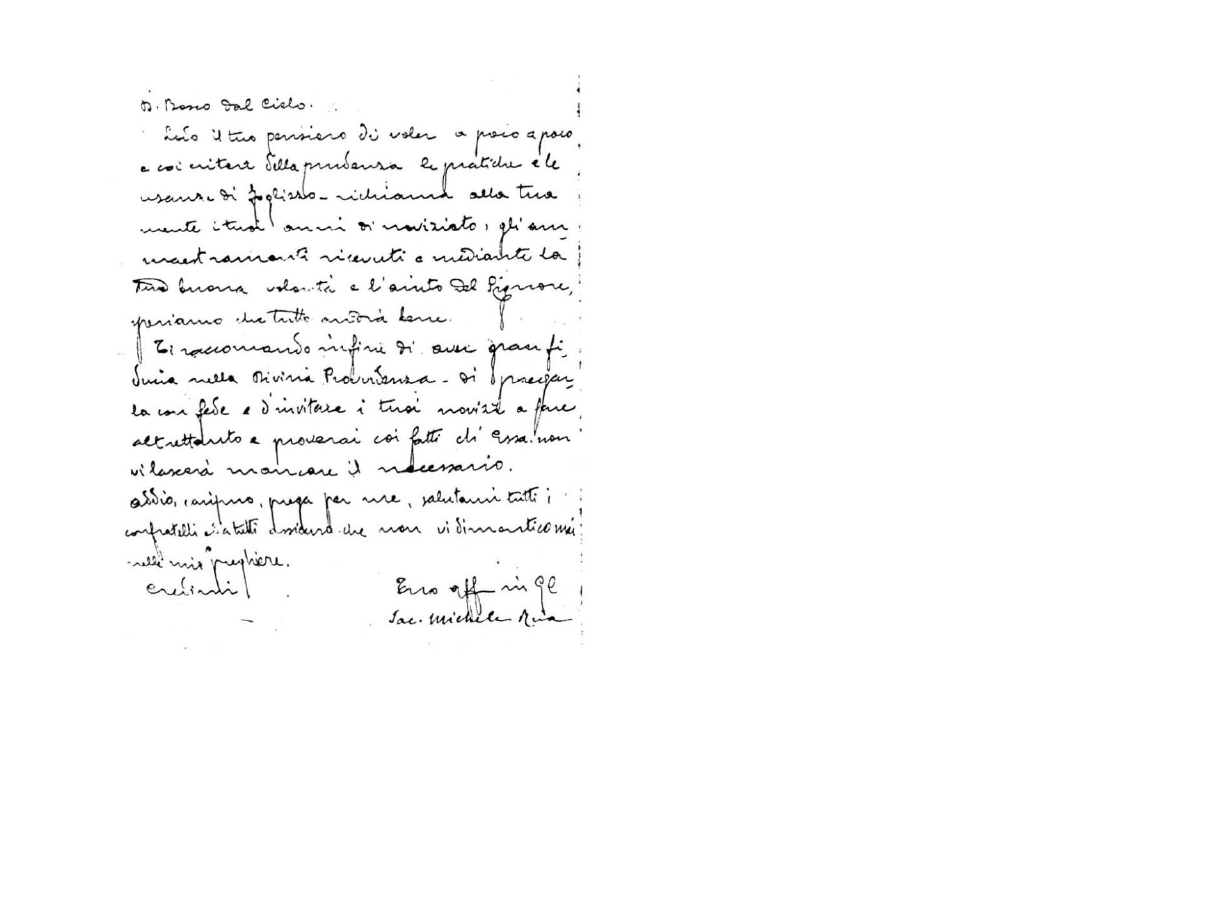 D. Bosco dal Cielo.
Lodo il tuo pensiero di voler a poco a poco
e coi criteri della prudenza le pratiche e le
usanze di Foglizzo - richiama alla tua
mente i tuoi anni di noviziato, gli am-
maestramenti ricevuti e mediante la
tua buona volontà e l'aiuto del Signore,
speriamo che tutto andrà bene.
Ti raccomando infine di aver gran fi-
ducia nella Divina Provvidenza - di pregar-
la con fede e d'invitare i tuoi novizi a fare
altrettanto e proverai coi fatti ch'Essa non
vi lascerà mancare il necessario.
Addio, carissimo, prega per me, salutami tutti i
confratelli e a tutti assicura che non vi dimentico mai
nelle mie preghiere.
Credimi
Tuo aff in GC
Sac. Michele Rua